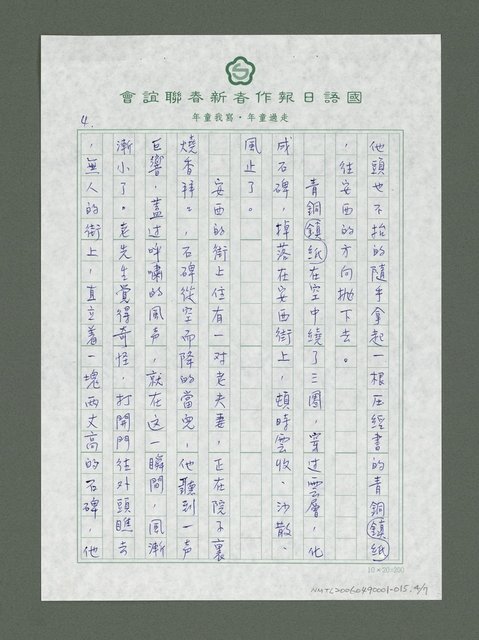 國語日報作者新春聯誼會
走過童年．寫我童年
4.
他頭也不抬的隨手拿起一根压經書的青銅鎮紙
，往安西的方向拋下去。
青銅鎮紙在空中繞了三圈，穿过雲層，化
成石碑，掉落在安西街上，頓時雲收、沙散、
風止了。
安西的街上住有一对老夫妻，正在院子裏
燒香拜拜，石碑從空而降的當兒，他聽到一声
巨響，蓋过呼嘯的風声，就在这一瞬間，風漸
漸小了。老先生覺得奇怪，打開門往外頭瞧去
，無人的街上，直立着一塊兩丈高的石碑，他
10×20=200
NMTL20060490001-015, 4/7